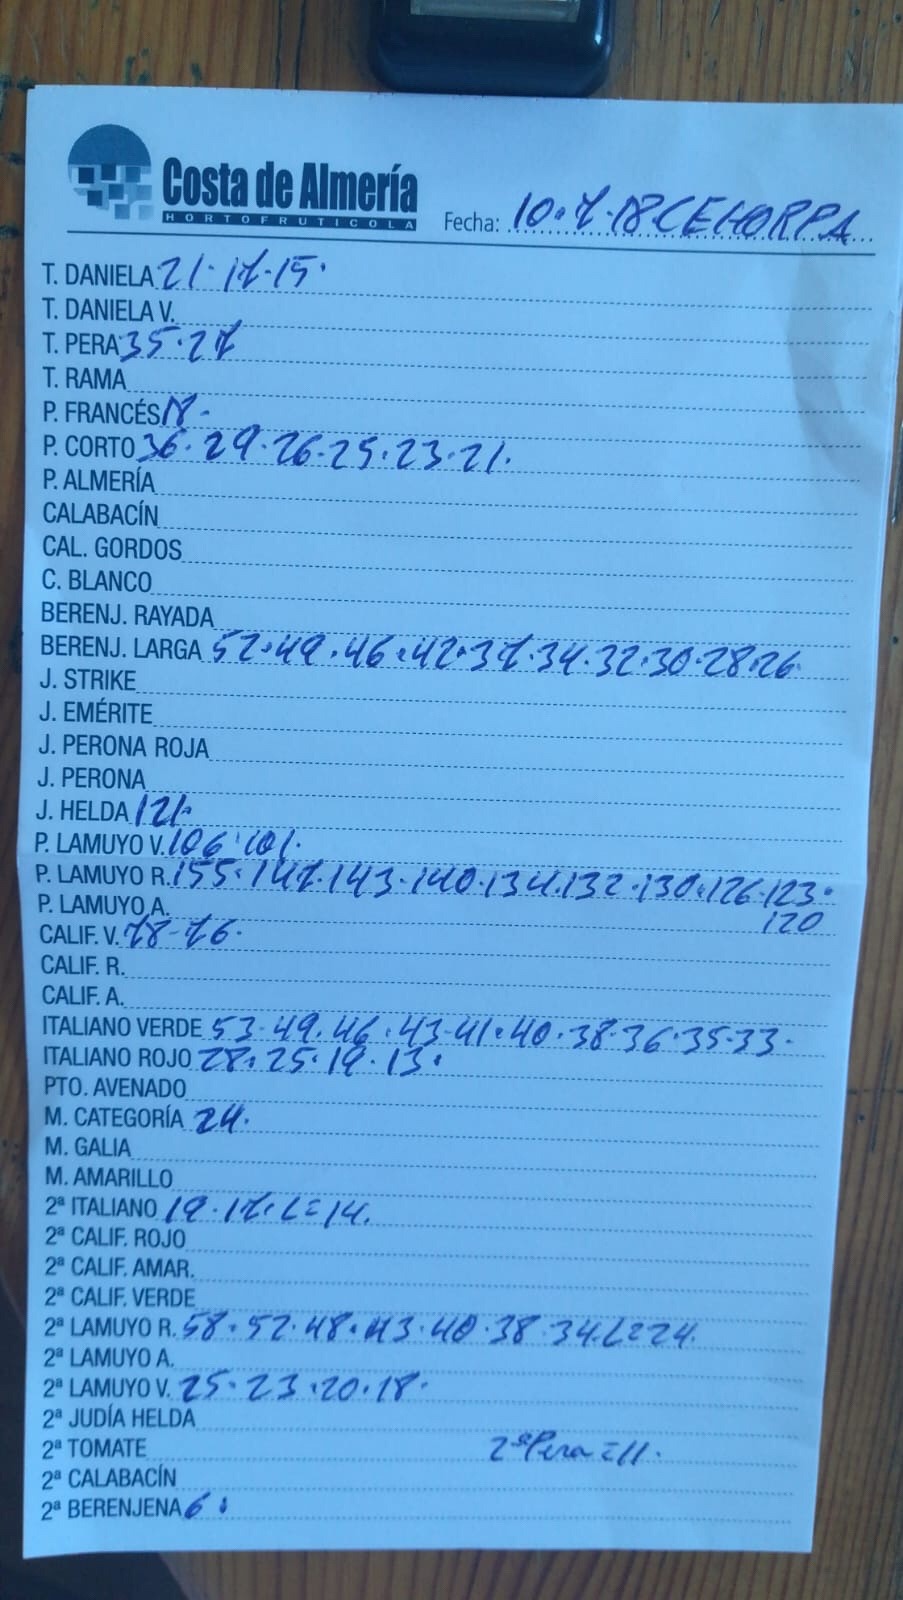 Costa de Almería
HORTOFRUTICOLA
Fecha: 10.7.18 CEHORPA
T. DANIELA 21.17.15.
T. DANIELA V.
T. PERA 35.27
T. RAMA
P. FRANCÉS 18.
P. CORTO 36.29.26.25.23.21.
P. ALMERÍA
CALABACÍN
CAL. GORDOS
C. BLANCO
BERENJ. RAYADA
BERENJ. LARGA 52.49.46.42.37.34.32.30.28.26
J. STRIKE
J. EMÉRITE
J. PERONA ROJA
J. PERONA
J. HELDA 121.
P. LAMUYO V. 106.101.
P. LAMUYO R. 155.147.143.140.134.132.130.126.123.
120
P. LAMUYO A.
CALIF. V. 78-76.
CALIF. R.
CALIF. A.
ITALIANO VERDE 53.49.46.43.41.40.38.36.35.33.
ITALIANO ROJO 28.25.19.13.
PTO. AVENADO
M. CATEGORÍA 24.
M. GALIA
M. AMARILLO
2ª ITALIANO 19.17.L=14.
2ª CALIF. ROJO
2ª CALIF. AMAR.
2ª CALIF. VERDE
2ª LAMUYO R. 58.52.48.43.40.38.34.L=24.
2ª LAMUYO A.
2ª LAMUYO V. 25.23.20.18.
2ª JUDÍA HELDA
2ª TOMATE 2ª Pera=11.
2ª CALABACÍN
2ª BERENJENA 6.